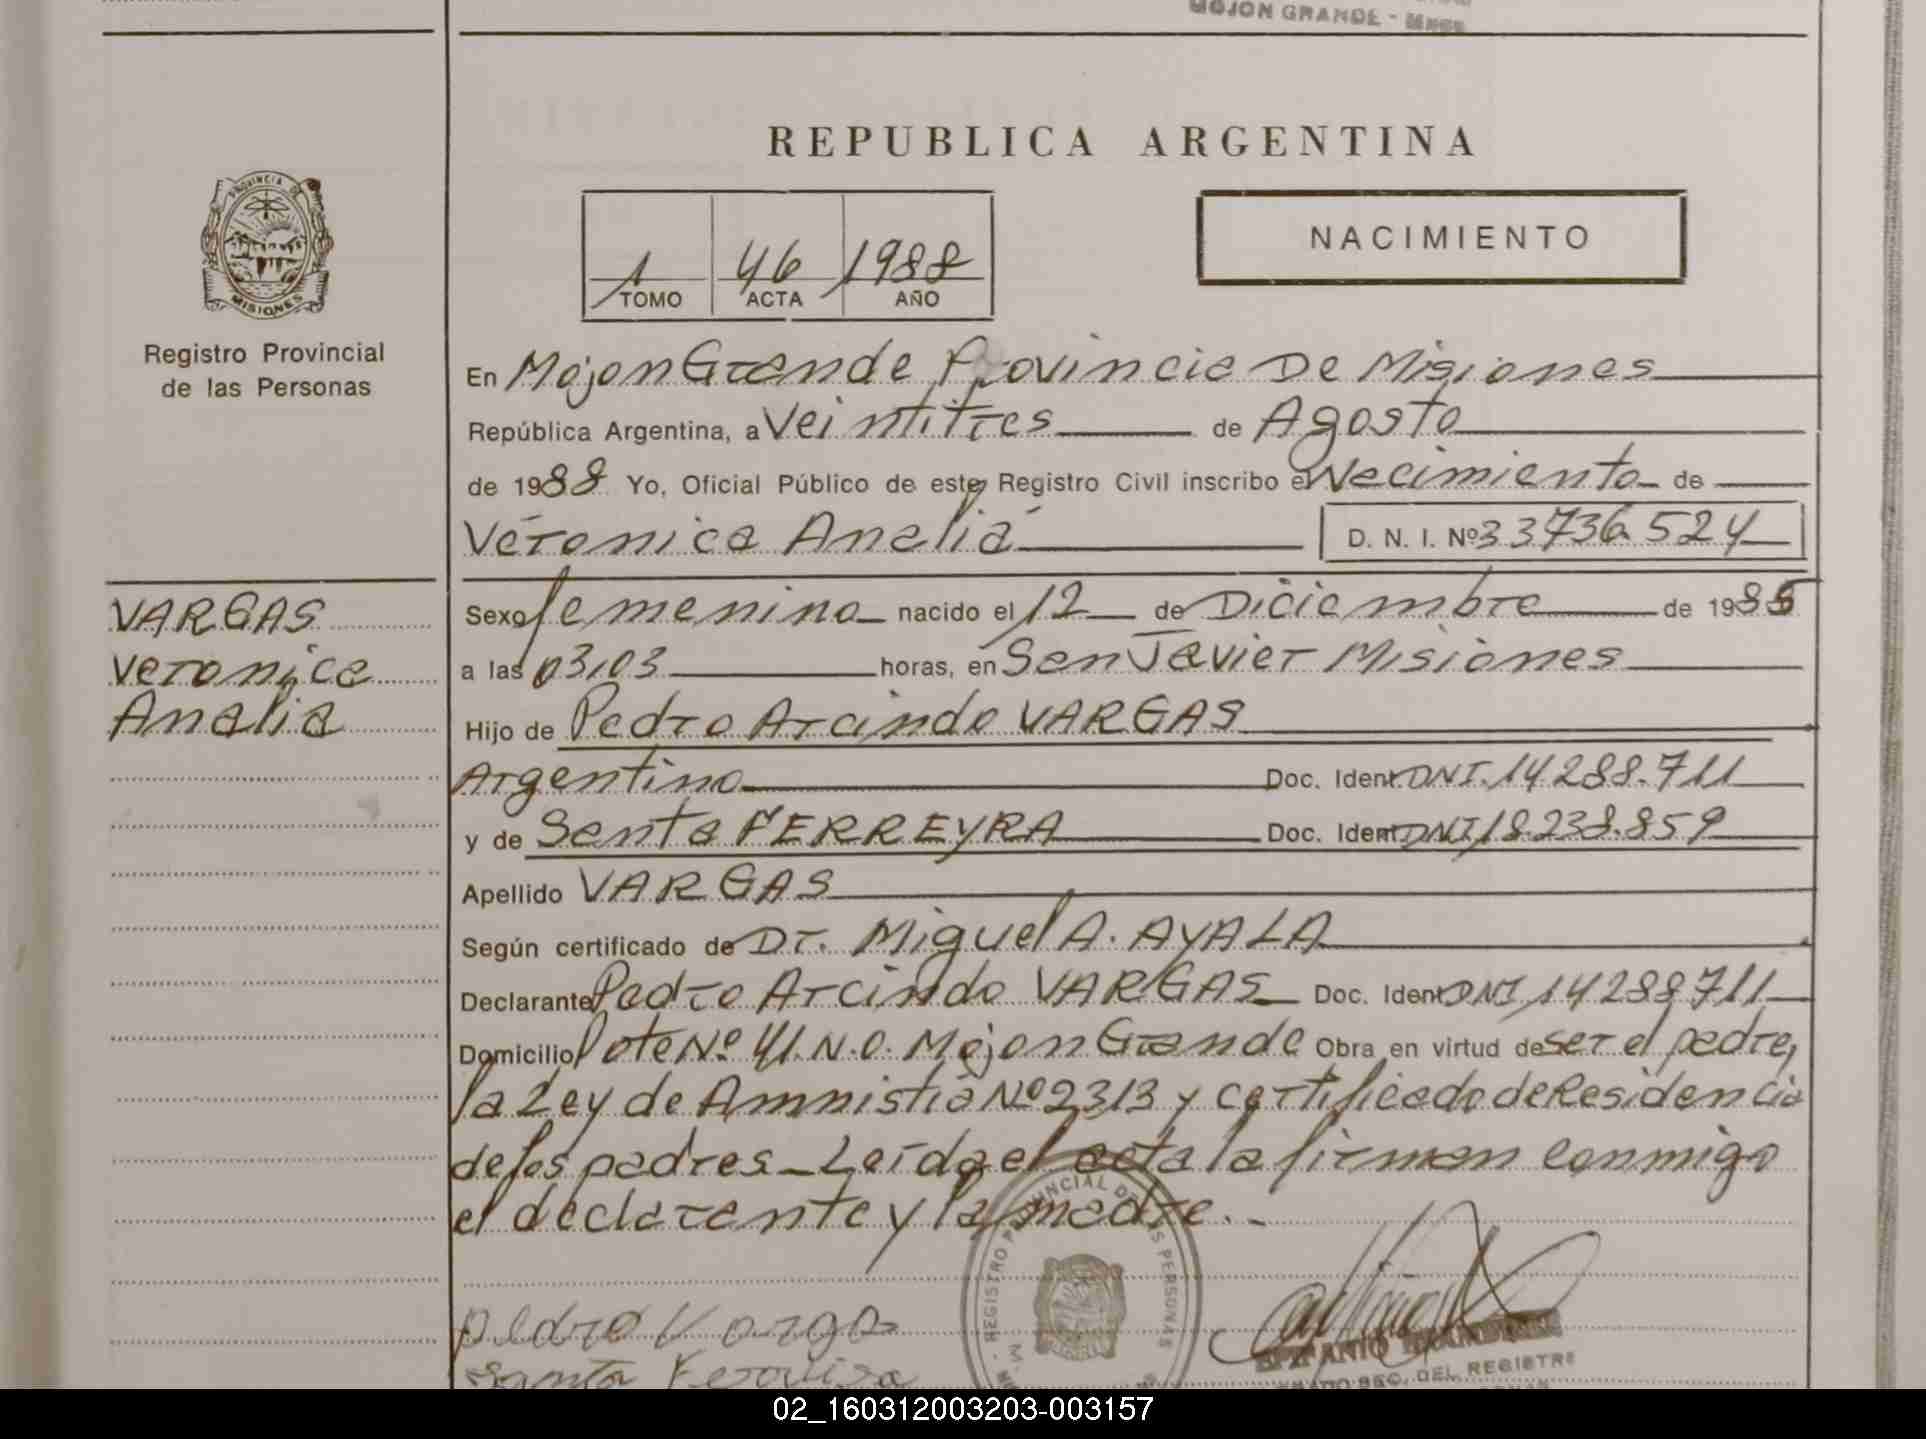 MOJON GRANDE - Mnes
REPUBLICA ARGENTINA
PROVINCIA DE
MISIONES
Registro Provincial
de las Personas
1 46 1988
TOMO ACTA AÑO
NACIMIENTO
En Mojon Grande Provincia De Misiones
República Argentina, a Veintitres de Agosto
de 1988 Yo, Oficial Público de este Registro Civil inscribo el Nacimiento de
Verónica Analiá D. N. I. Nº 33736.524
VARGAS
Veronica
Analia
Sexo femenino nacido el 12 de Diciembre de 198
a las 03,03 horas, en San Javier Misiones
Hijo de Pedro Arcindo VARGAS
Argentino Doc. Ident. DNI. 14.288.711
y de Santa FERREYRA Doc. Ident. DNI 18.238.859
Apellido VARGAS
Según certificado de Dr. Miguel A. AYALA
Declarante Pedro Arcindo VARGAS Doc. Ident. DNI 14288711
Domicilio Lote Nº 41.N.O. Mojon Grande Obra en virtud de ser el padre,
la Ley de Amnistia Nº 2313 y certificado de Residencia
de los padres_Leída el acta la firman conmigo
el declarante y la madre.-
REGISTRO PROVINCIAL DE LAS PERSONAS
Pedro Vargas
Santa
EPIFANIO
SEC. DEL REGISTRO
02_160312003203-003157